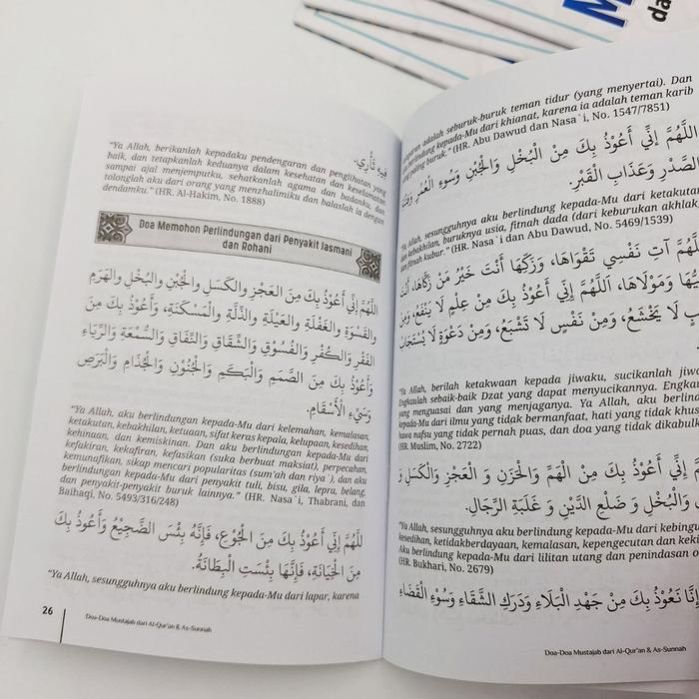 M
da
فِيهِ ثَأْرِي.
"Ya Allah, berikanlah kepadaku pendengaran dan penglihatan yang
baik, dan tetapkanlah keduanya dalam kesehatan dan keselamatan
sampai ajal menjemputku, sehatkanlah agama dan badanku, dan
tolonglah aku dari orang yang menzhalimiku dan balaslah ia dengan
dendamku." (HR. Al-Hakim, No. 1888)
Doa Memohon Perlindungan dari Penyakit Jasmani
dan Rohani
اَللَّهُمَّ إِنِّي أَعُوْذُ بِكَ مِنَ الْعَجْزِ وَالْكَسَلِ وَالْجُبْنِ وَالْبُخْلِ وَالْهَرَمِ
وَالْقَسْوَةِ وَالْغَفْلَةِ وَالْعَيْلَةِ وَالذِّلَّةِ وَالْمَسْكَنَةِ، وَأَعُوْذُ بِكَ مِنَ
الْفَقْرِ وَالْكُفْرِ وَالْفُسُوْقِ وَالشِّقَاقِ وَالنِّفَاقِ وَالسُّمْعَةِ وَالرِّيَاءِ
وَأَعُوْذُ بِكَ مِنَ الصَّمَمِ وَالْبَكَمِ وَالْجُنُوْنِ وَالْجُذَامِ وَالْبَرَصِ
وَسَيِّءِ الْأَسْقَامِ.
"Ya Allah, aku berlindungan kepada-Mu dari kelemahan, kemalasan,
ketakutan, kebakhilan, ketuaan, sifat keras kepala, kelupaan, kesedihan,
kehinaan, dan kemiskinan. Dan aku berlindungan kepada-Mu dari
kefakiran, kekafiran, kefasikan (suka berbuat maksiat), perpecahan,
kemunafikan, sikap mencari popularitas (sum'ah dan riya`), dan aku
berlindungan kepada-Mu dari penyakit tuli, bisu, gila, lepra, belang,
dan penyakit-penyakit buruk lainnya." (HR. Nasa`i, Thabrani, dan
Baihaqi. No. 5493/316/248)
للَّهُمَّ إِنِّيْ أَعُوْذُ بِكَ مِنَ الْجُوْعِ، فَإِنَّهُ بِئْسَ الضَّجِيْعُ وَأَعُوذُ بِكَ
مِنَ الْخِيَانَةِ، فَإِنَّهَا بِئْسَتِ الْبِطَانَةُ.
"Ya Allah, sesungguhnya aku berlindung kepada-Mu dari lapar, karena
26
Doa-Doa Mustajab dari Al-Qur'an & As-Sunnah
adalah seburuk-buruk teman tidur (yang menyertai). Dan
berlindung kepada-Mu dari khianat, karena ia adalah teman karib
paling buruk." (HR. Abu Dawud dan Nasa`i, No. 1547/7851)
اَللَّهُمَّ إِنِّي أَعُوْذُ بِكَ مِنَ الْبُخْلِ وَالْجُبْنِ وَسُوءِ الْعُمُرِ
الصَّدْرِ وَعَذَابِ الْقَبْرِ.
Allah, sesungguhnya aku berlindung kepada-Mu dari ketakuta
kebakhilan, buruknya usia, fitnah dada (dari keburukan akhlak,
fitnah kubur." (HR. Nasa`i dan Abu Dawud, No. 5469/1539)
لَّهُمَّ آتِ نَفْسِي تَقْوَاهَا، وَزَكِّهَا أَنْتَ خَيْرُ مَنْ زَكَّاهَا، أَنْتَ
وَمَوْلَاهَا، اَللَّهُمَّ إِنِّي أَعُوْذُ بِكَ مِنْ عِلْمٍ لَا يَنْفَعُ، وَمِنْ
لَا يَخْشَعُ، وَمِنْ نَفْسٍ لَا تَشْبَعُ، وَمِنْ دَعْوَةٍ لَا يُسْتَجَابُ
"Ya Allah, berilah ketakwaan kepada jiwaku, sucikanlah jiwa
Engkaulah sebaik-baik Dzat yang dapat menyucikannya. Engkau
yang menguasai dan yang menjaganya. Ya Allah, aku berlind
kepada-Mu dari ilmu yang tidak bermanfaat, hati yang tidak khus
hawa nafsu yang tidak pernah puas, dan doa yang tidak dikabulk
(HR. Muslim, No. 2722)
إِنِّي أَعُوْذُ بِكَ مِنْ الْهَمِّ وَالْحَزَنِ وَ الْعَجْزِ وَالْكَسَلِ وَ
وَالْبُخْلِ وَ ضَلَعِ الدَّيْنِ وَ غَلَبَةِ الرِّجَالِ.
"Ya Allah, sesungguhnya aku berlindung kepada-Mu dari kebingu
kesedihan, ketidakberdayaan, kemalasan, kepengecutan dan keki
Aku berlindung kepada-Mu dari lilitan utang dan penindasan o
(HR. Bukhari, No. 2679)
إِنَّا نَعُوْذُ بِكَ مِنْ جَهْدِ الْبَلَاءِ وَدَرَكِ الشَّقَاءِ وَسُوْءِ الْقَضَاءِ
Doa-Doa Mustajab dari Al-Qur'an & As-Sunnah